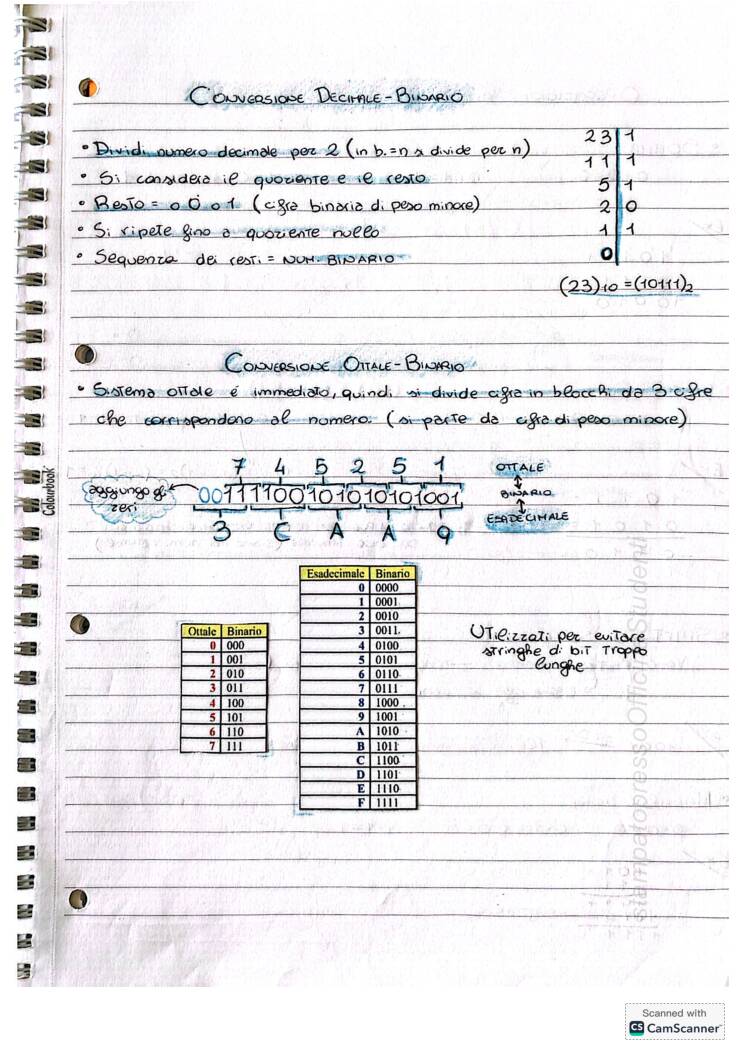 CONVERSIONE DECIMALE-BINARIO
• Dividi numero decimale per 2 (in b.=n si divide per n)
• Si considera il quoziente e il resto
• Resto = 0 o 1 (cifra binaria di peso minore)
• Si ripete fino a quoziente nullo
• Sequenza dei resti = NUM. BINARIO
23 | 1
11 | 1
5 | 1
2 | 0
1 | 1
0 |
(23)10 = (10111)2
CONVERSIONE OTTALE-BINARIO
• Sistema ottale è immediato, quindi si divide cifra in blocchi da 3 cifre
che corrispondono al numero. (si parte da cifra di peso minore)
7 4 5 2 5 1
aggiungo gli
zeri
00111100101010101001
3 C A A 9
OTTALE
↕
BINARIO
↕
ESADECIMALE
Ottale Binario
0 000
1 001
2 010
3 011
4 100
5 101
6 110
7 111
Esadecimale Binario
0 0000
1 0001
2 0010
3 0011
4 0100
5 0101
6 0110
7 0111
8 1000
9 1001
A 1010
B 1011
C 1100
D 1101
E 1110
F 1111
UTilizzati per evitare
stringhe di bit troppo
lunghe
Colourbook
Scanned with
CS CamScanner